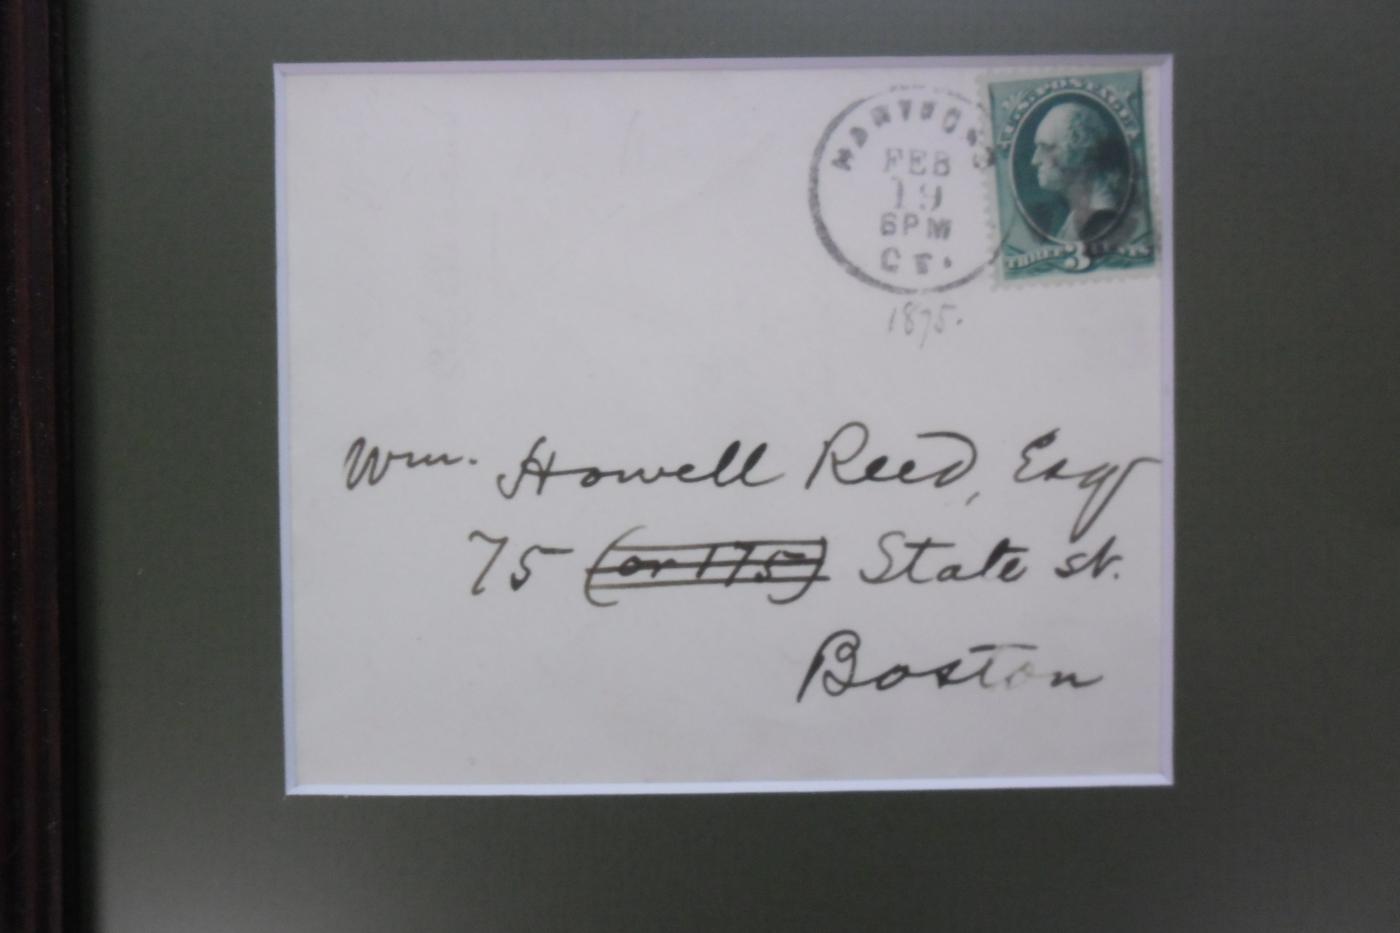 HARTFORD
FEB
19
6PM
CT.
U.S. POSTAGE
THREE 3 CENTS
1875.
Wm. Howell Reed, Esqr
75 (or 175) State st.
Boston